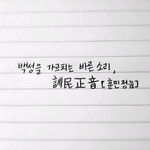 백성을 가르치는 바른 소리,
訓民正音 [훈민정음]